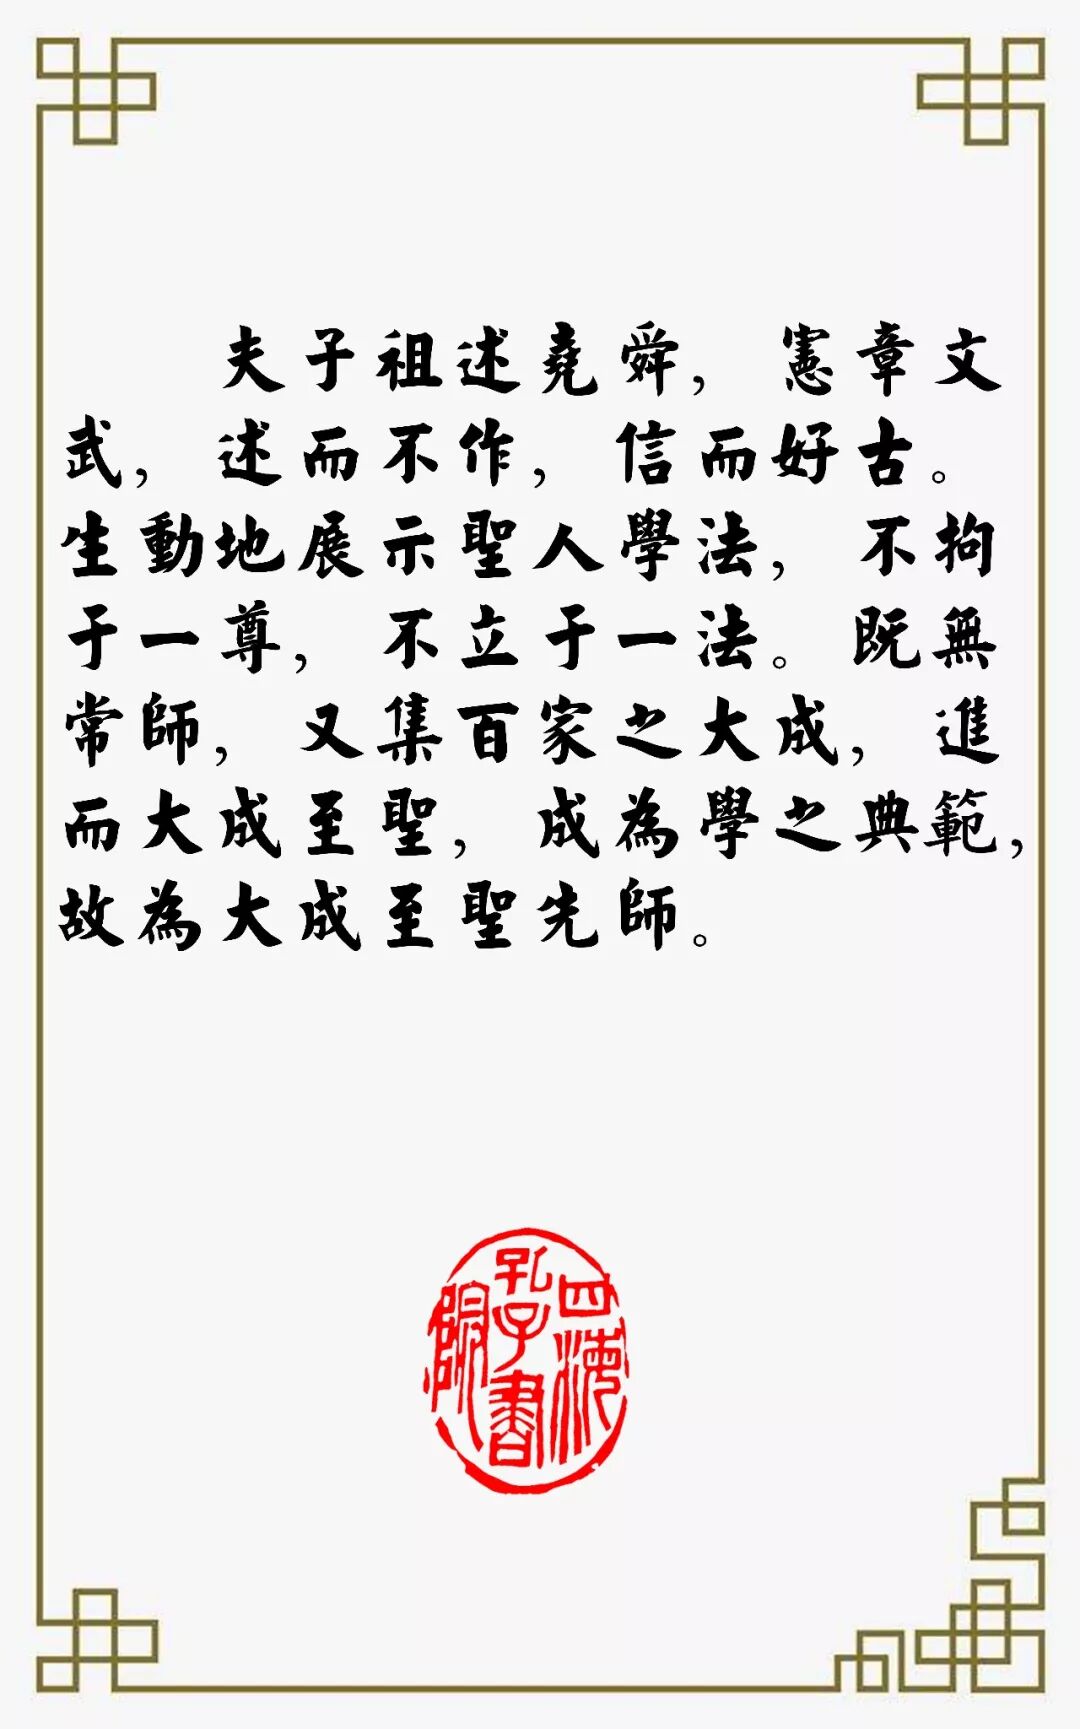 夫子祖述堯舜，憲章文
武，述而不作，信而好古。
生動地展示聖人學法，不拘
于一尊，不立于一法。既無
常師，又集百家之大成，進
而大成至聖，成為學之典範，
故為大成至聖先師。
四海
孔子書
院